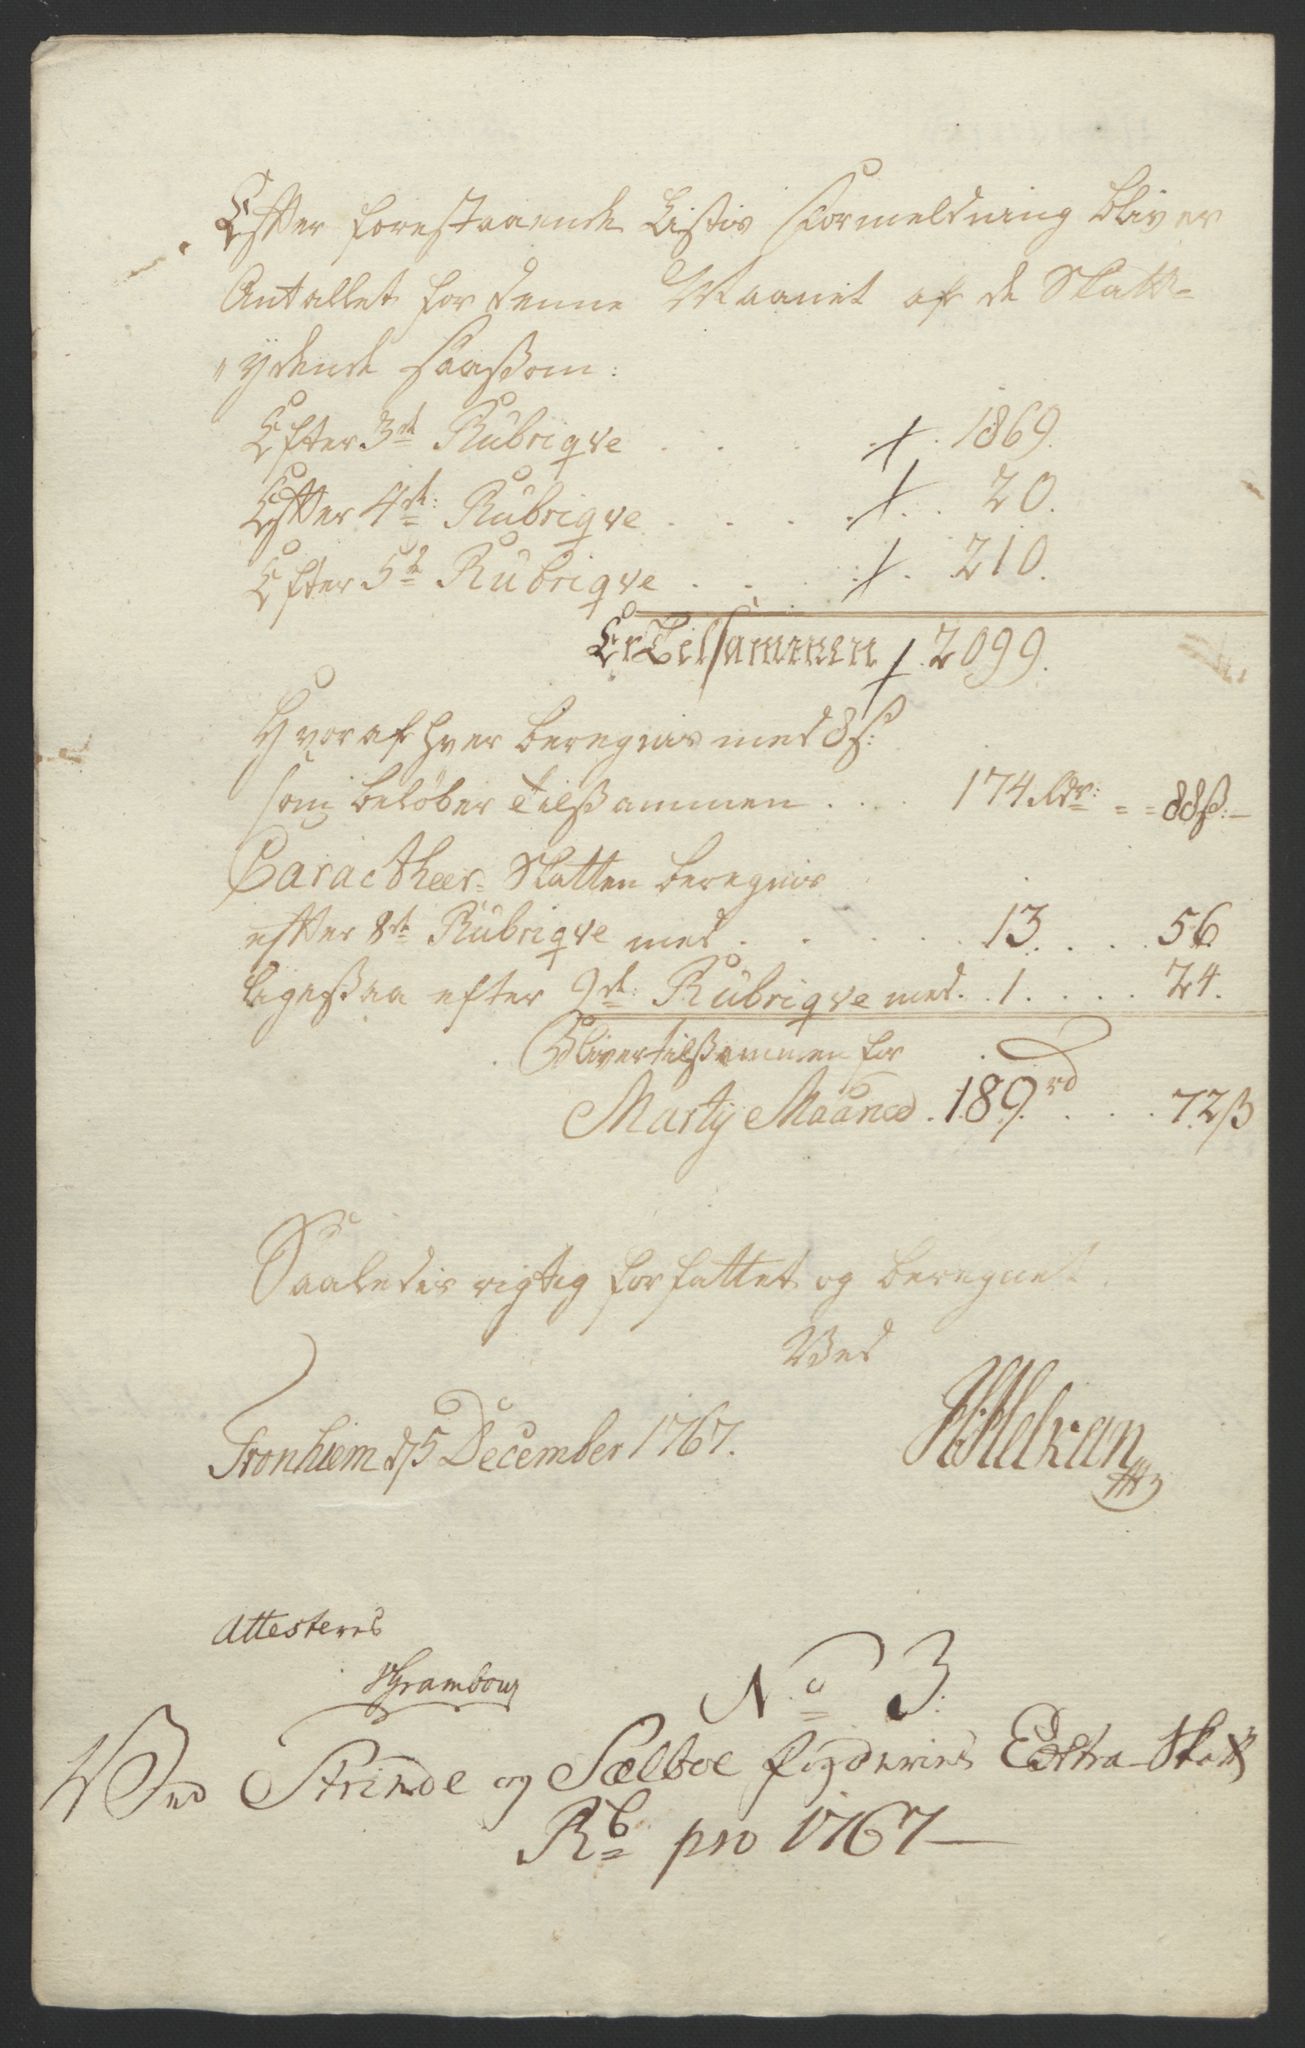 Efter forestaaende Listis Formeldning bliver
Antallet for denne Maanet af de Skatt-
ydende saassom:
Efter 3de Rubriqve . . . 1869.
Efter 4de: Rubriqve . . . 20.
Efter 5te Rubriqve . . . 210.
Er Tilsammen 2099.
Hvoraf hver beregnis med 8 s:
som beløber Tilsammen . . . 174 Rdr: - - 88 s:
Caractheer-Skatten beregnis
efter 8de Rubriqve med . . . 13. . . . 56.
ligessaa efter 9de: Rubriqve med . . 1. . . . 24.
Bliver tilsammen for
Marty Maaned . 189 rd . . . 72 s
Saaledis rigtig forfattet og beregnet.
Ved
Tronhiem d 5 December 1767.
Attesteres
No 3.
Ved Strinde og Sælboe fogderies Extra-Skatt
Rb pro 1767